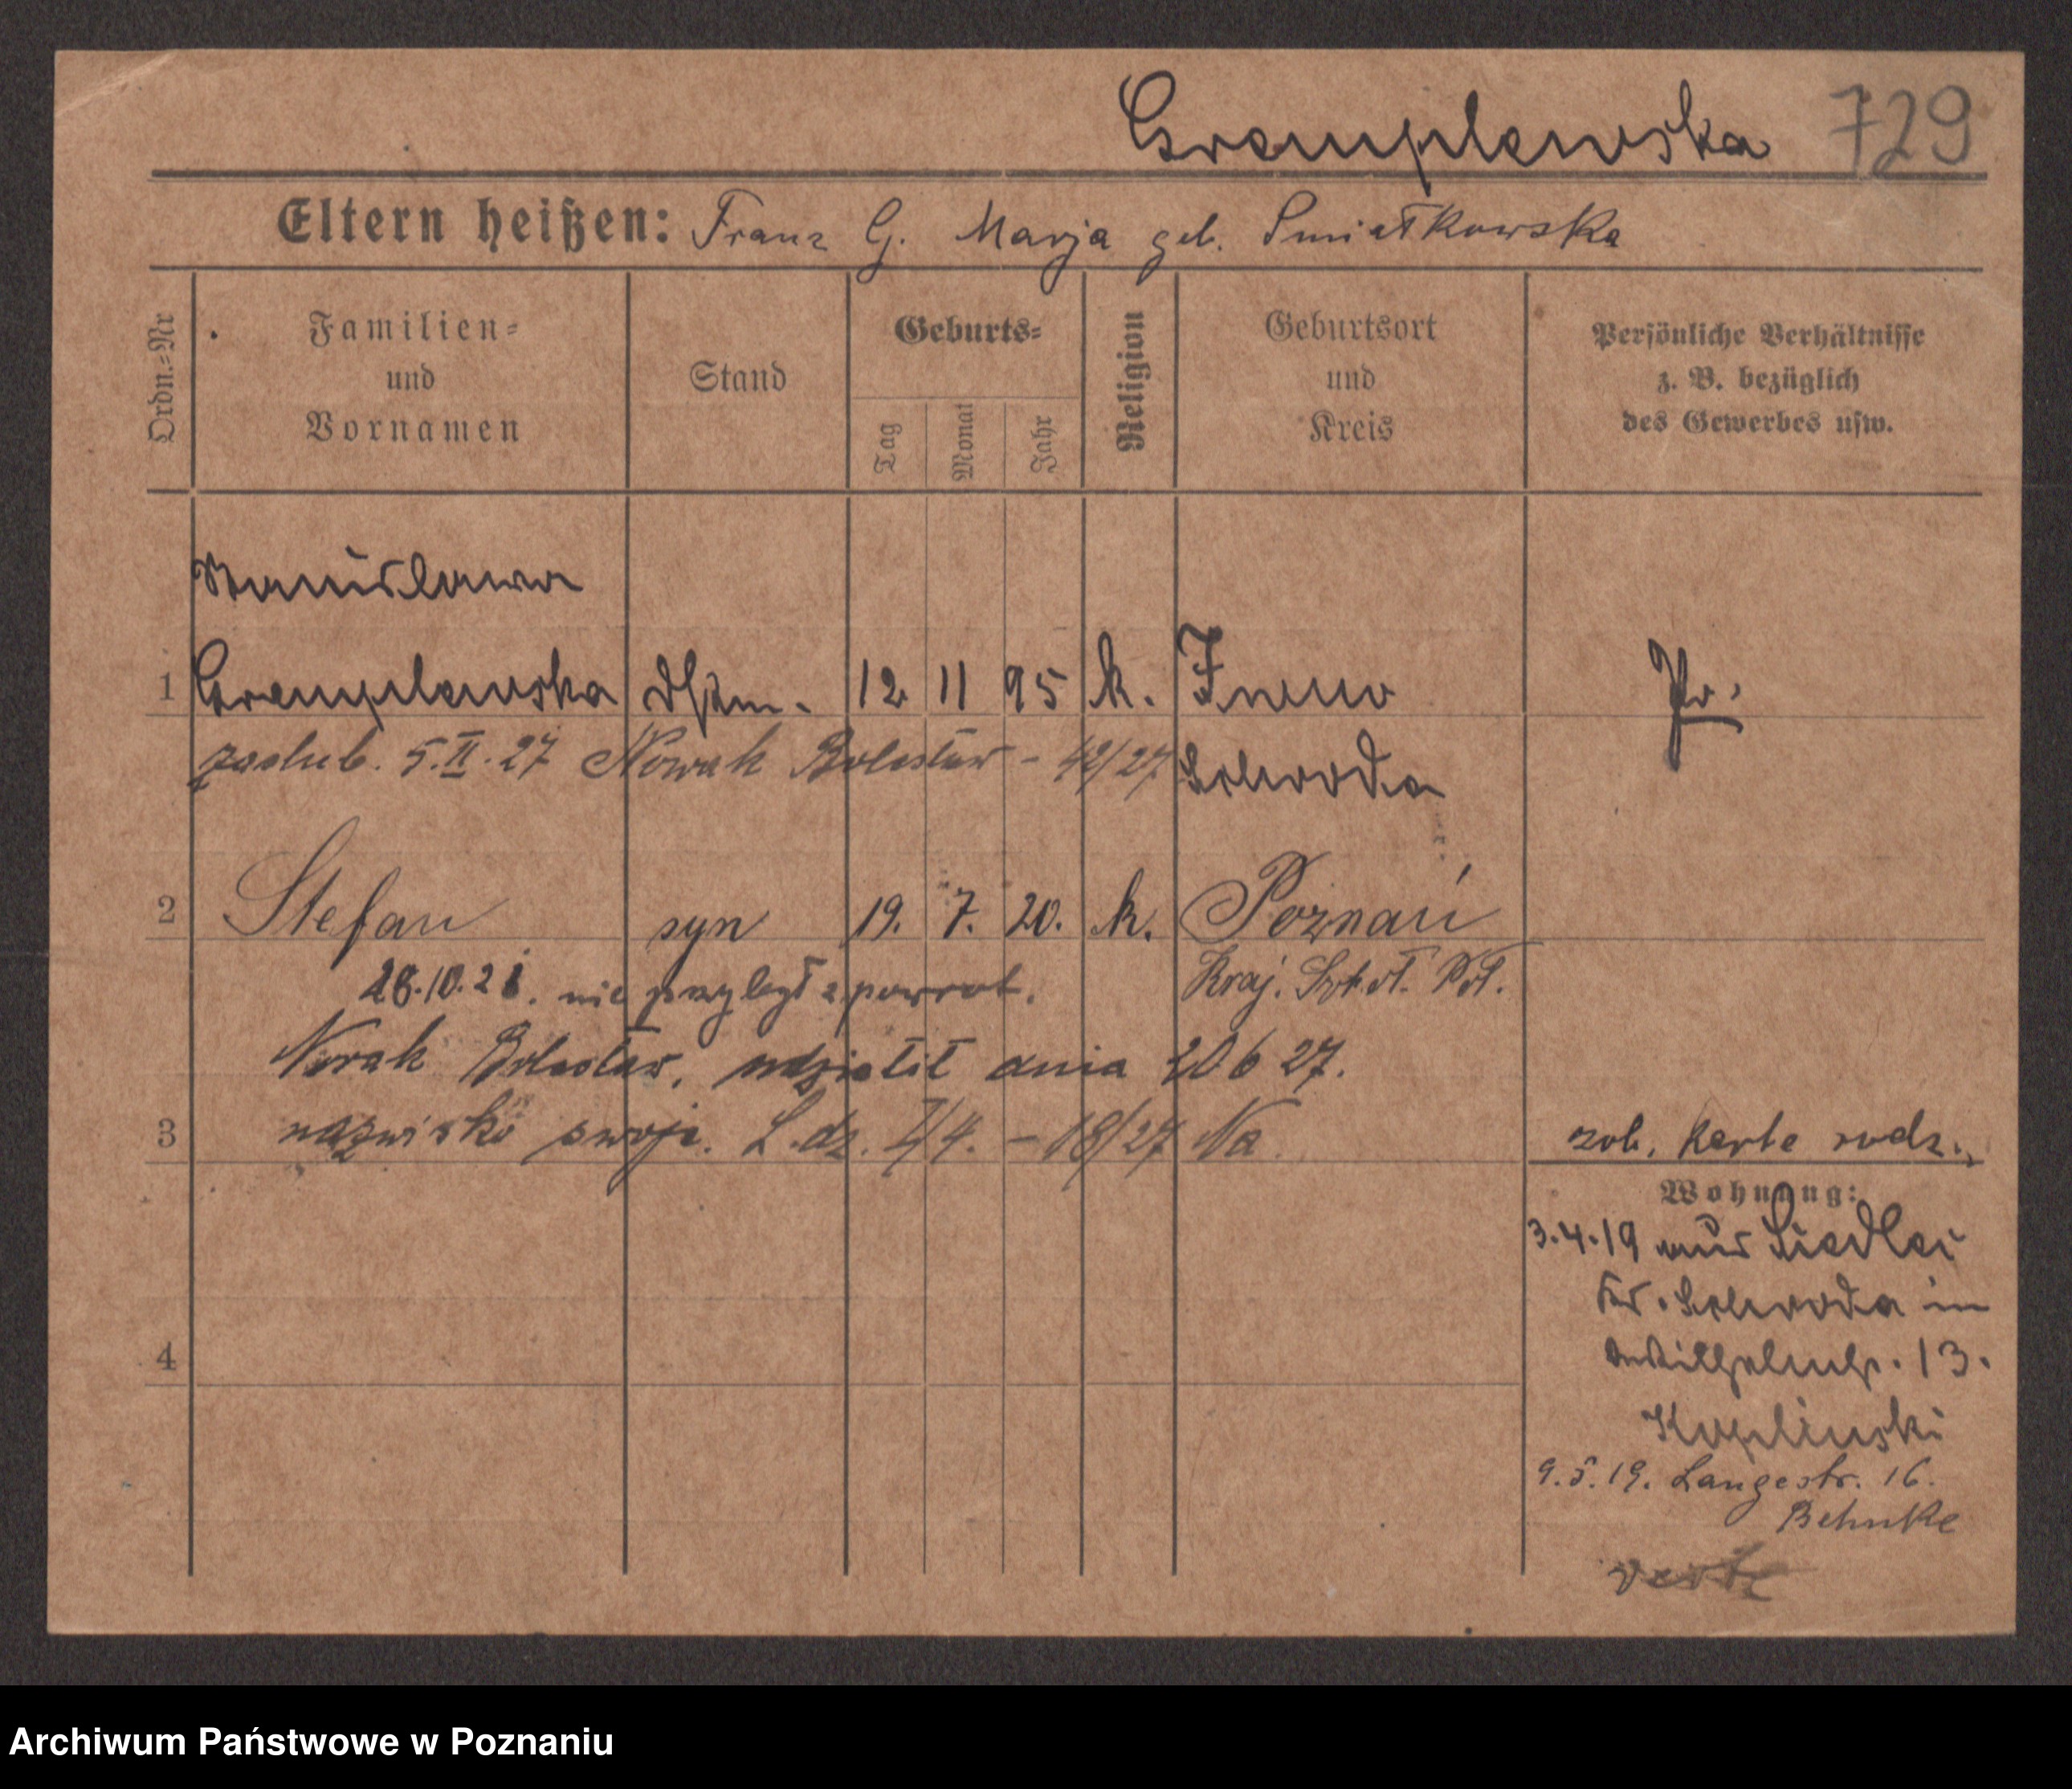 Gremplewska 729
Eltern heißen: Franz G. Marja geb. Smiatkowska
Ordn.=Nr
Familien=
und
Vornamen
Stand
Geburts=
Tag
Monat
Jahr
Religion
Geburtsort
und
Kreis
Persönliche Verhältnisse
z. B. bezüglich
des Gewerbes usw.
Stanislawa
1 Gremplewska 12 11 95 k. Pr.
zaslub. 5.II.27 Nowak Bolesław - 42/27 Schroda
2 Stefan syn 19. 7. 20. k. Poznań
28.10.21. nie przybył z powrot. Kraj.
Nowak Bolesław, udzielił dnia 20 6 27.
3 nazwisko swoje. L. dz. - 18/27 Na
zob. karte rodz.
Wohnung:
3.4.19 aus Siedlec
Kr. Schroda in
Wilhelmstr. 13.
4
Koplinski
9.5.19. Langestr. 16.
Behnke
verte
Archiwum Państwowe w Poznaniu